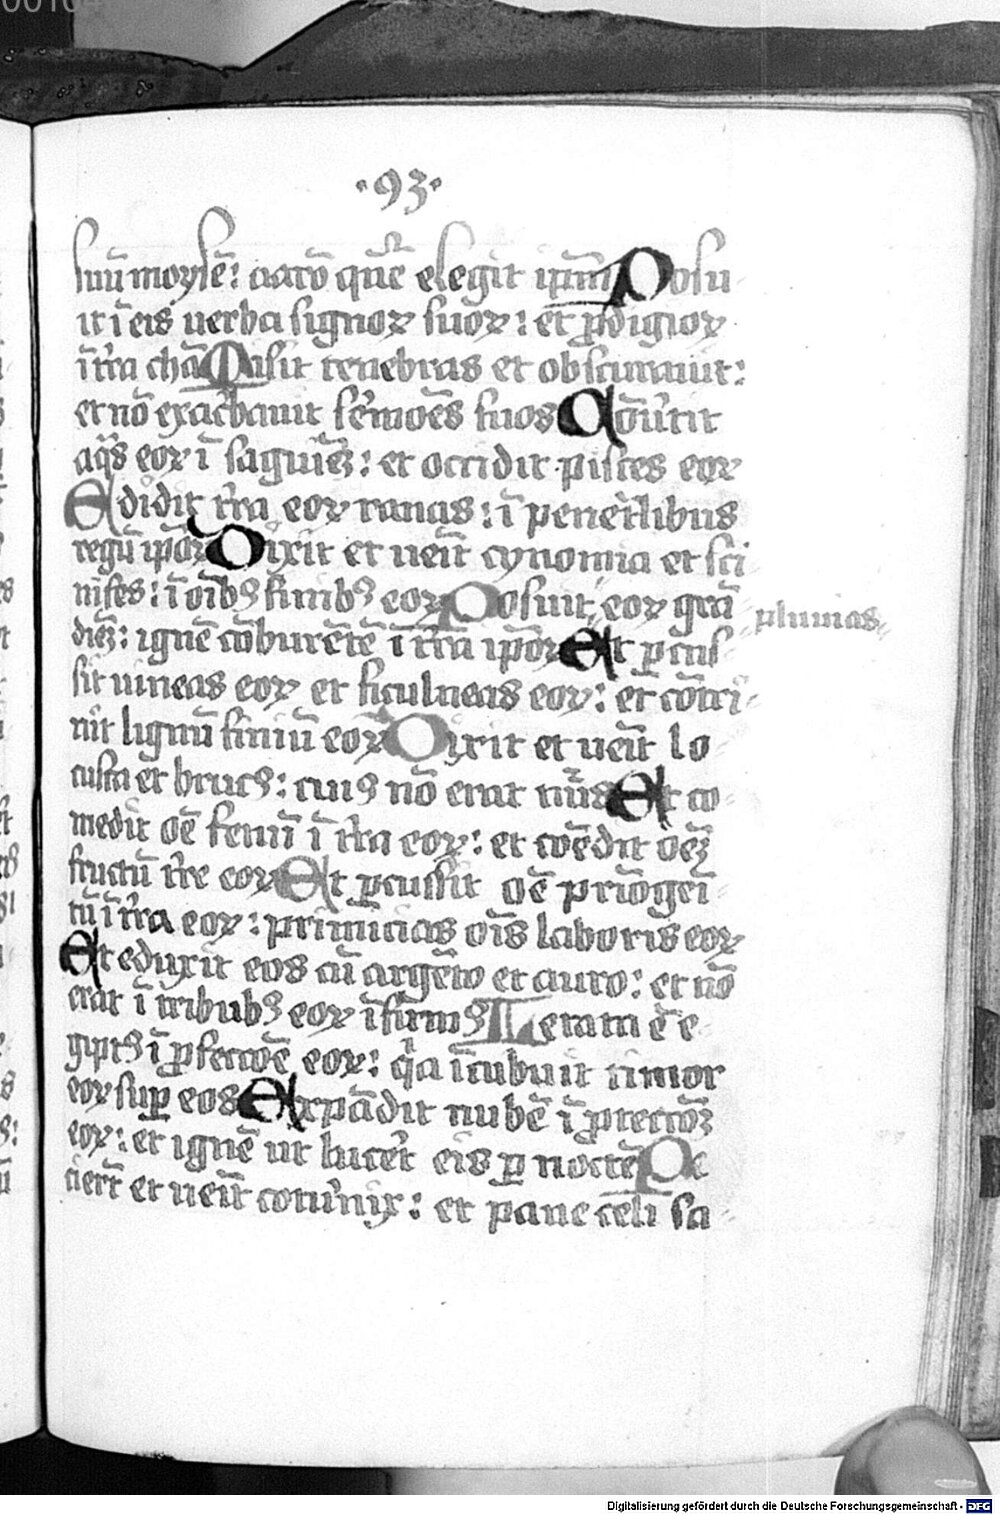 ·93·
suū moysē: aarō quē elegit ip̄m Posu
it ī eis uerba signoꝝ suoꝝ: et ꝓdigioꝝ
ī tr̄a chā Misit tenebras et obscurauit:
et nō exac̄bauit s̄moēs suos Cōūtit
aq̄s eoꝝ ī saguīeꝫ: et occidit pisces eoꝝ
Edidit tr̄a eoꝝ ranas: ī penetl̄ibus
regū ip̄oꝝ Dixit et ueīt cynomia et sci
nifes: ī oīb⁹ finib⁹ eoꝝ Posuit eoꝝ grā
pluuias
dīeꝫ: ignē cōburētē ī tr̄a ip̄oꝝ Et ꝑcus
sit uineas eoꝝ et ficulneas eoꝝ: et cōtri
uit lignū finiū eoꝝ Dixit et ueīt lo
custa et bruc⁹: cui⁹ nō erat nūs Et co
medit oē fenū ī tr̄a eoꝝ: et coēdit oēꝫ
fructū tr̄e eoꝝ Et ꝑcussit oē prīogeī
tū ī tr̄a eoꝝ: primicias oīs laboris eoꝝ
Et eduxit eos cū argēto et auro: et nō
erat ī tribub⁹ eoꝝ īfirm⁹ Letata ē e
gipt⁹ ī ꝓfectōē eoꝝ: q̄a īcubuit timor
eoꝝ suꝑ eos Expādit nubē ī ꝓtectōeꝫ
eoꝝ: et ignē ut lucēt eis ꝑ noctē Pe
tierūt et ueīt cotu̓nix: et pane celi sa
Digitalisierung gefördert durch die Deutsche Forschungsgemeinschaft - DFG